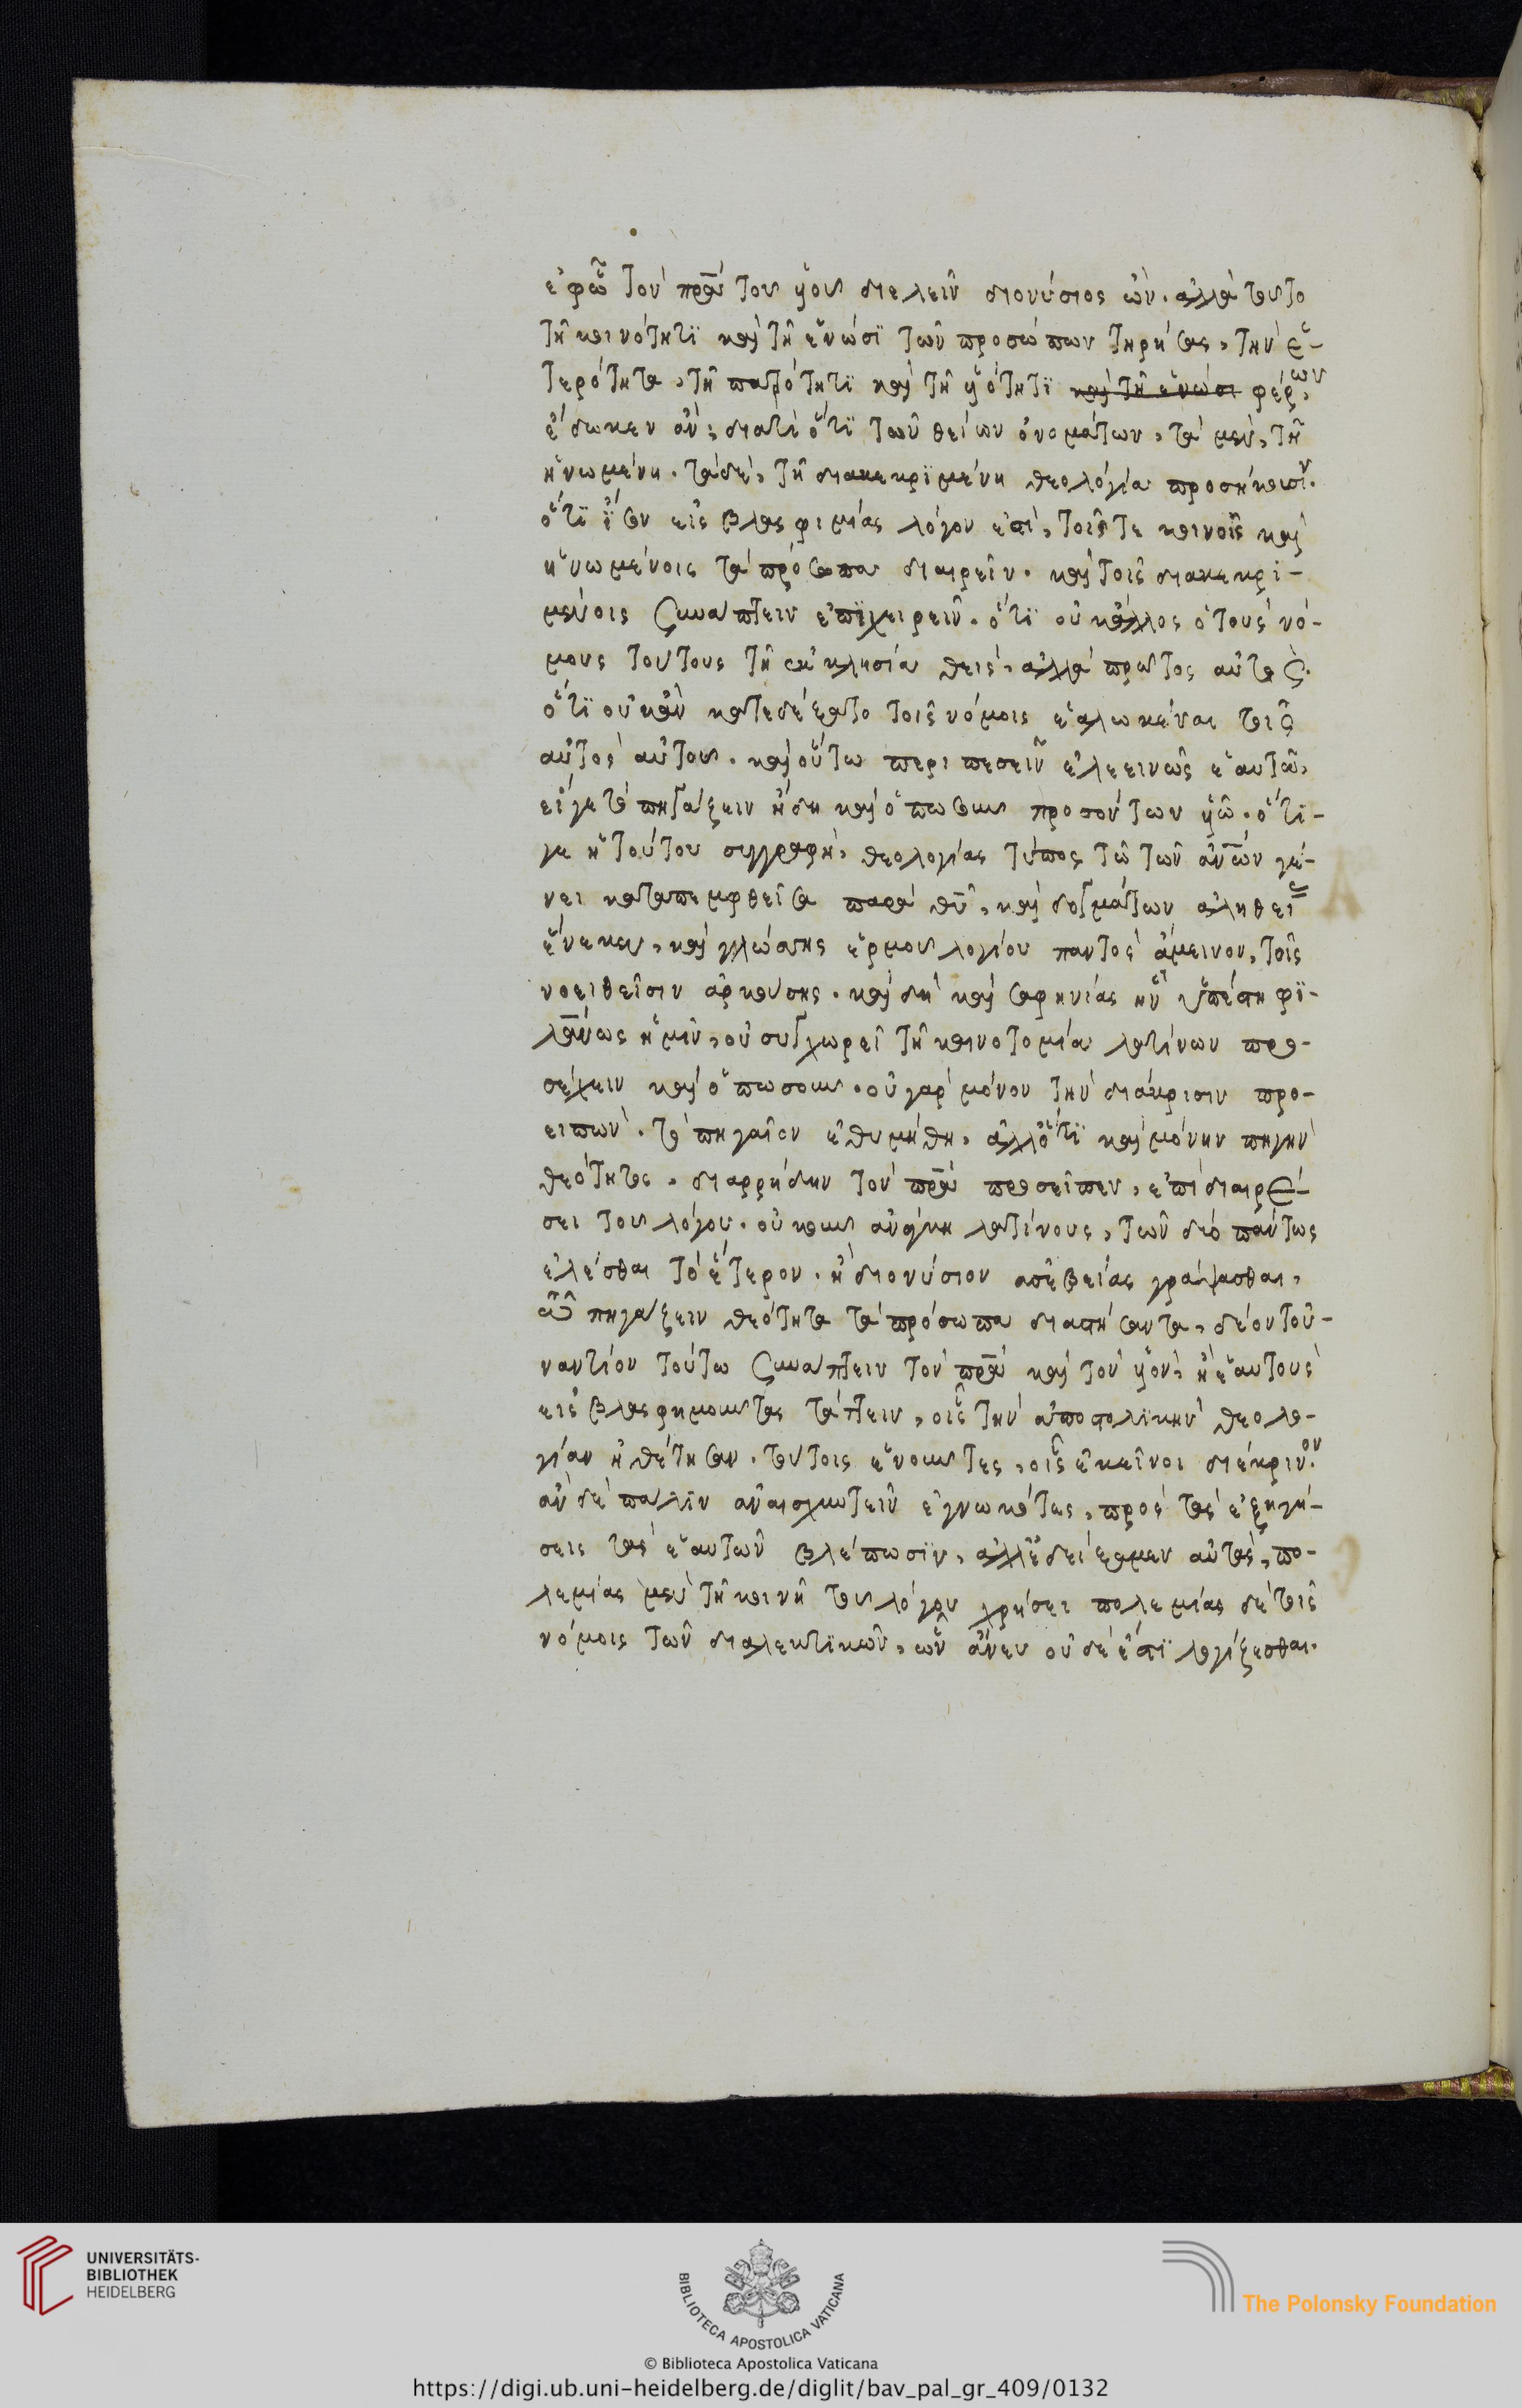 ἐφῶ τὸν πρα τοῦ υἱοῦ διελεῖν διονύσιος ὤν. ἀλλὰ τοῦτο
τῇ κοινότητι καὶ τῇ ἑνώσι τῶν προσώπων τηρήσας, τὴν ἑ-
τερότητα, τῇ πατρότητι καὶ τῇ υἱότητι καὶ τῇ ἑνώσι φέρων
ἔδωκεν ἄν; διατί ὅτι τῶν θείων ὀνομάτων, τὰ μὲν, τῇ
ἡνωμένῃ. τὰ δὲ, τῇ διακεκριμένῃ θεολογία προσήκουσιν.
ὅτι ἴσον εἰς βλασφιμίας λόγον ἐστὶ, τοῖς τε κοινοῖς καὶ
ἡνωμένοις τὰ πρόσωπα διαιρεῖν. καὶ τοῖς διακεκρι-
μένοις συνάπτειν ἐπιχειρεῖν. ὅτι οὐκ ἄλλος ὁ τοὺς νό-
μους τούτους τῇ ἐκκλησία θεὶς, ἀλλὰ πρῶτος αὐτὸς.
ὅτι οὐκ ἂν κατεδέξατο τοῖς νόμοις ἑαλωκέναι τοῖς
αὐτὸς αὐτοῦ. καὶ οὕτω περιπεσεῖν ἐλεεινῶς ἑαυτῶ,
εἴγε τὸ πηγάζειν ᾔδη καὶ ὁπωσοῦν προσόντων υἱῶ. ὅτι-
γε ἡ τούτου συγγραφὴ, θεολογίας τύπος τῶ τῶν ἀνων γέ-
νει καταπεμφθεῖσα παρὰ θυ, καὶ δογμάτων ἀληθείας
ἕνεκεν, καὶ γλώσσης ἑρμοῦ λογίου παντὸς ἄμεινον, τοῖς
νοειθεῖσιν ἀρκούσης. καὶ δὴ καὶ σαφηνίας ἣν ὑπέστη φι-
λανως ἡμῖν, οὐ συγχωρεῖ τῇ καινοτομία λατίνων προ-
σέχειν καὶ ὁπωσοῦν. οὐ γὰρ μόνον τὴν διάκρισιν προ-
ειπὼν. τὸ πηγαῖον ἐθυμήθη, ἀλλ' ὅτι καὶ μόνην πηγὴν
θεότητος, διαρρήδην τὸν πρα προσεῖπεν, ἐπὶ διαιρέ-
σει τοῦ λόγου. οὐκοῦν ἀνάγκη λατίνους, τῶν δύο πάντως
ἑλέσθαι τὸ ἕτερον. ἢ διονύσιον ἀσεβείας γράψασθαι,
πηγάζειν θεότητα τὰ πρόσωπα διαστήσαντα, δέον τοὐ-
ναντίον τούτω συνάπτειν τὸν πρα καὶ τὸν υἱὸν, ἢ ἑαυτοὺς
εἰς βλασφημοῦντας τάττειν, οἷς τὴν ἀποστολικὴν θεολο-
γίαν ἠθέτησαν. τούτοις ἑνοῦντες, οἷς ἐκεῖνοι διέκρινον.
ἂν δὲ πάλιν ἀναισχυντεῖν ἐγνωκότες, πρὸς τὰς ἐξηγή-
σεις τὰς ἑαυτῶν βλέπωσιν, ἀλλ' ἐδείξαμεν αὐτὰς, πο-
λεμίας μὲν τῇ κοινῇ τοῦ λόγου χρήσει πολεμίας δὲ τοῖς
νόμοις τῶν διαλεκτικῶν, ὧν ἄνευ οὐδέ ἐστι λογίζεσθαι.
UNIVERSITÄTS-
BIBLIOTHEK
HEIDELBERG
BIBLIOTECA APOSTOLICA VATICANA
The Polonsky Foundation
© Biblioteca Apostolica Vaticana
https://digi.ub.uni-heidelberg.de/diglit/bav_pal_gr_409/0132